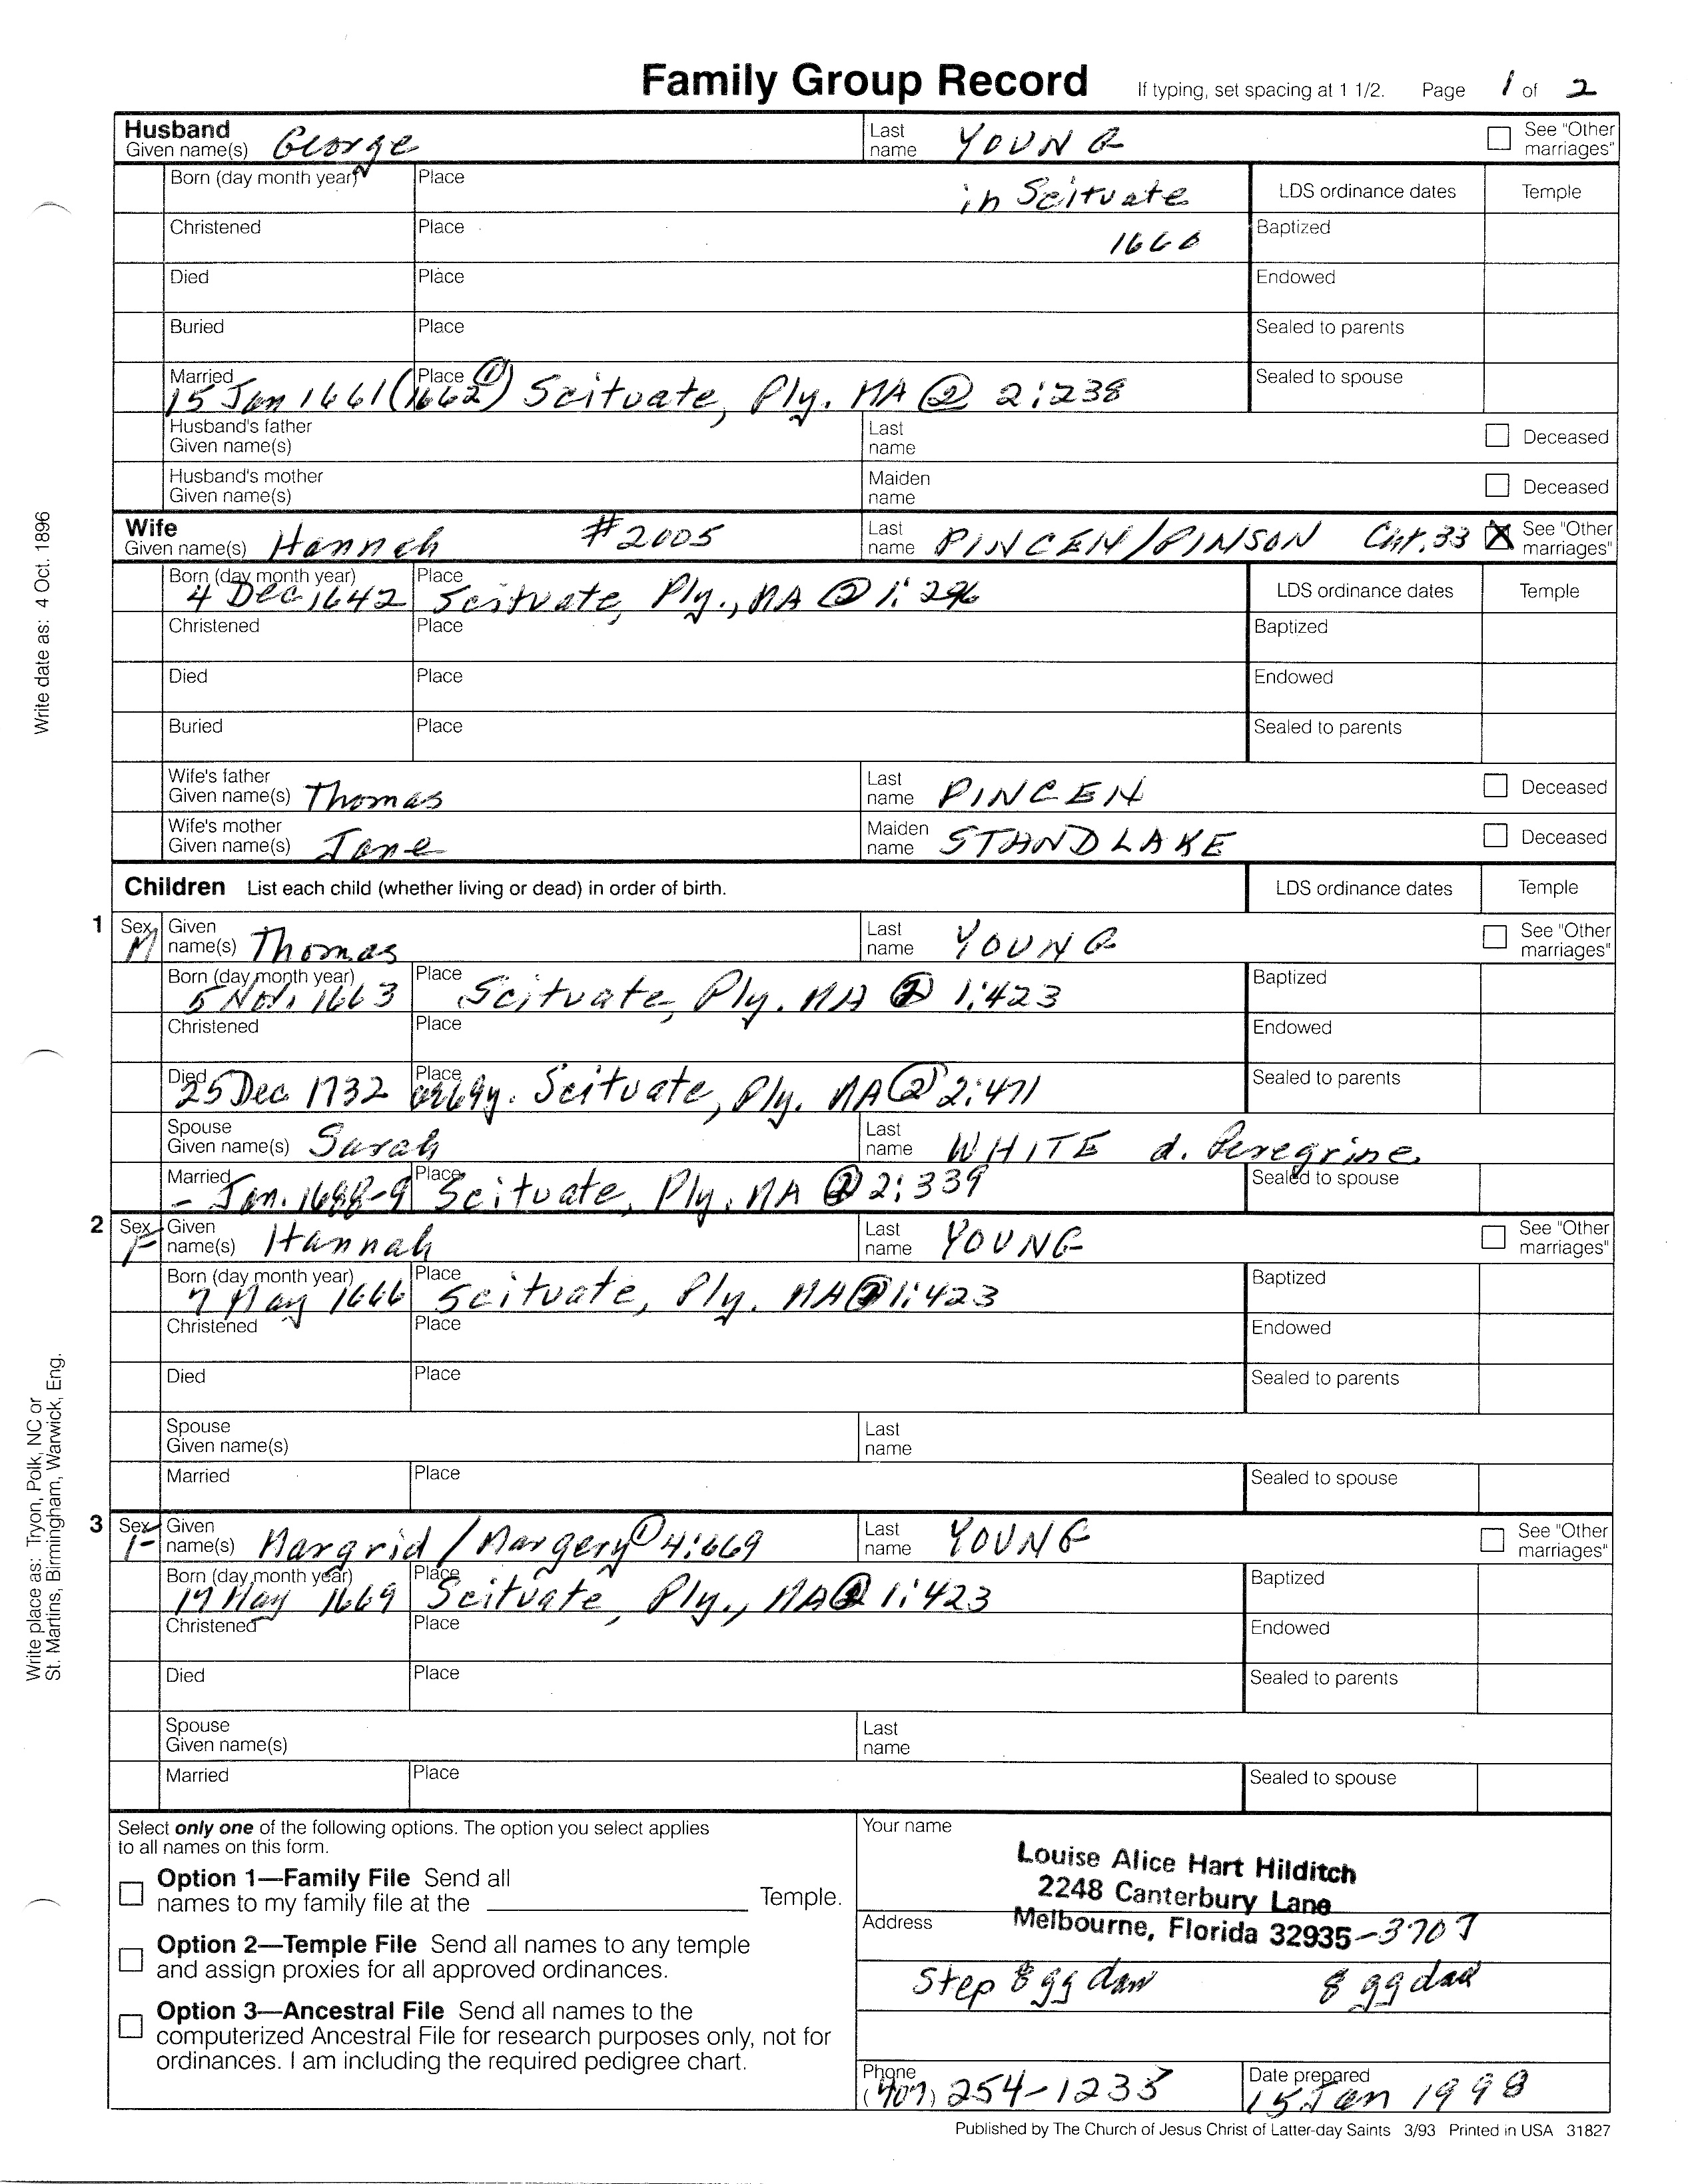 Family Group Record If typing, set spacing at 1 1/2. Page 1 of 2
Husband
Given name(s) George Last name YOUNG See "Other marriages"
Born (day month year) Place in Scituate LDS ordinance dates Temple
Christened Place 1660 Baptized
Died Place Endowed
Buried Place Sealed to parents
Married 15 Jan 1661(1662) Place ① Scituate, Ply. MA @ 2:238 Sealed to spouse
Husband's father Given name(s) Last name Deceased
Husband's mother Given name(s) Maiden name Deceased
Wife
Given name(s) Hannah #2005 Last name PINCEN/PINSON Cht.33 See "Other marriages"
Born (day month year) 4 Dec 1642 Place Scituate, Ply., MA @ 1:296 LDS ordinance dates Temple
Christened Place Baptized
Died Place Endowed
Buried Place Sealed to parents
Wife's father Given name(s) Thomas Last name PINCEN Deceased
Wife's mother Given name(s) Jane Maiden name STANDLAKE Deceased
Children List each child (whether living or dead) in order of birth. LDS ordinance dates Temple
1 Sex M Given name(s) Thomas Last name YOUNG See "Other marriages"
Born (day month year) 5 Nov. 1663 Place Scituate, Ply. MA @ 1:423 Baptized
Christened Place Endowed
Died 25 Dec 1732 Place Scituate, Ply. MA @ 2:471 Sealed to parents
Spouse Given name(s) Sarah Last name WHITE d. Peregrine
Married - Jan. 1688-9 Place Scituate, Ply. MA @ 2:339 Sealed to spouse
2 Sex F Given name(s) Hannah Last name YOUNG See "Other marriages"
Born (day month year) 7 May 1666 Place Scituate, Ply. MA @ 1:423 Baptized
Christened Place Endowed
Died Place Sealed to parents
Spouse Given name(s) Last name
Married Place Sealed to spouse
3 Sex F Given name(s) Margrid / Margery ① 4:669 Last name YOUNG See "Other marriages"
Born (day month year) May 1669 Place Scituate, Ply., MA @ 1:423 Baptized
Christened Place Endowed
Died Place Sealed to parents
Spouse Given name(s) Last name
Married Place Sealed to spouse
Select only one of the following options. The option you select applies
to all names on this form.
Option 1—Family File Send all
names to my family file at the Temple.
Option 2—Temple File Send all names to any temple
and assign proxies for all approved ordinances.
Option 3—Ancestral File Send all names to the
computerized Ancestral File for research purposes only, not for
ordinances. I am including the required pedigree chart.
Your name
Louise Alice Hart Hilditch
2248 Canterbury Lane
Address Melbourne, Florida 32935-3707
Step 8 gg dau 8 gg dau
Phone (407) 254-1233 Date prepared 15 Jan 1998
Published by The Church of Jesus Christ of Latter-day Saints 3/93 Printed in USA 31827
Write date as: 4 Oct. 1896
Write place as: Tryon, Polk, NC or
St. Martins, Birmingham, Warwick, Eng.